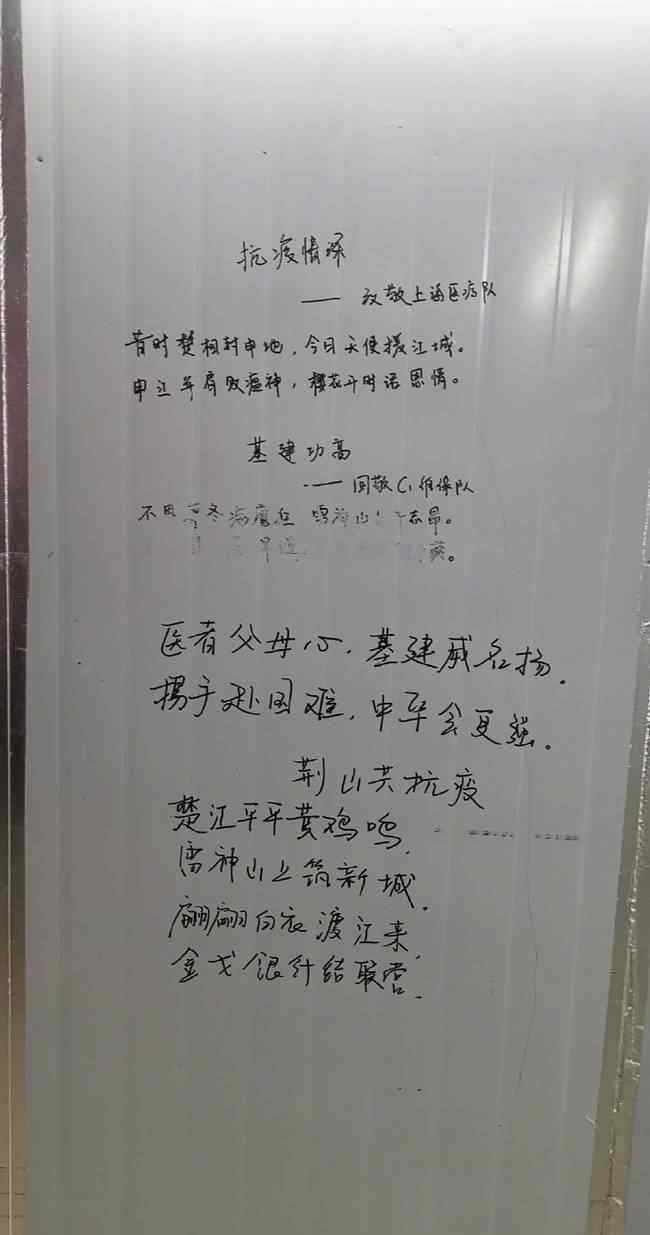 抗疫情深
—— 致敬上海医疗队
昔时楚相封申地，今日天使援江城。
申江并肩败瘟神，樱花开时话恩情。
基建功高
—— 回敬C1维保队
不因 冬病魔狂 雷神山 志昂。
医者父母心，基建威名扬。
携手赴国难，中华会更强。
荆山共抗疫
楚江平平黄鸡鸣.
雷神山上筑新城.
翩翩白衣渡江来.
金戈银针结联营.